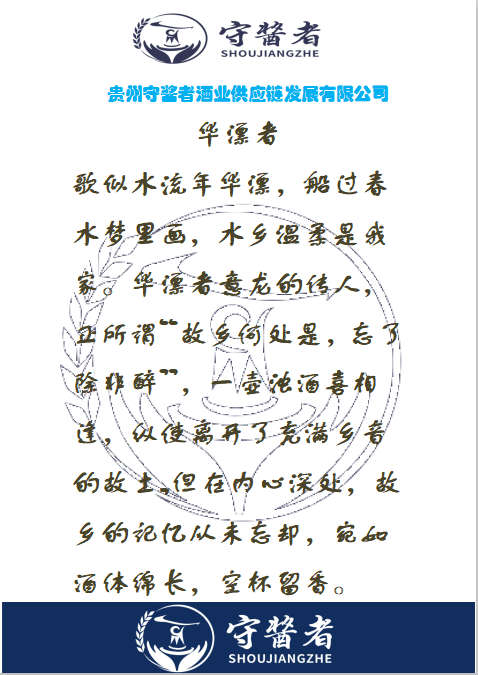 守酱者
SHOUJIANGZHE
贵州守酱者酒业供应链发展有限公司
华漂者
歌似水流年华漂，船过春
水梦里画，水乡温柔是我
家。华漂者意龙的传人，
正所谓“故乡何处是，忘了
除非醉”，一壶浊酒喜相
逢，纵使离开了充满乡音
的故土,但在内心深处，故
乡的记忆从未忘却，宛如
酒体绵长，空杯留香。
守酱者
SHOUJIANGZHE